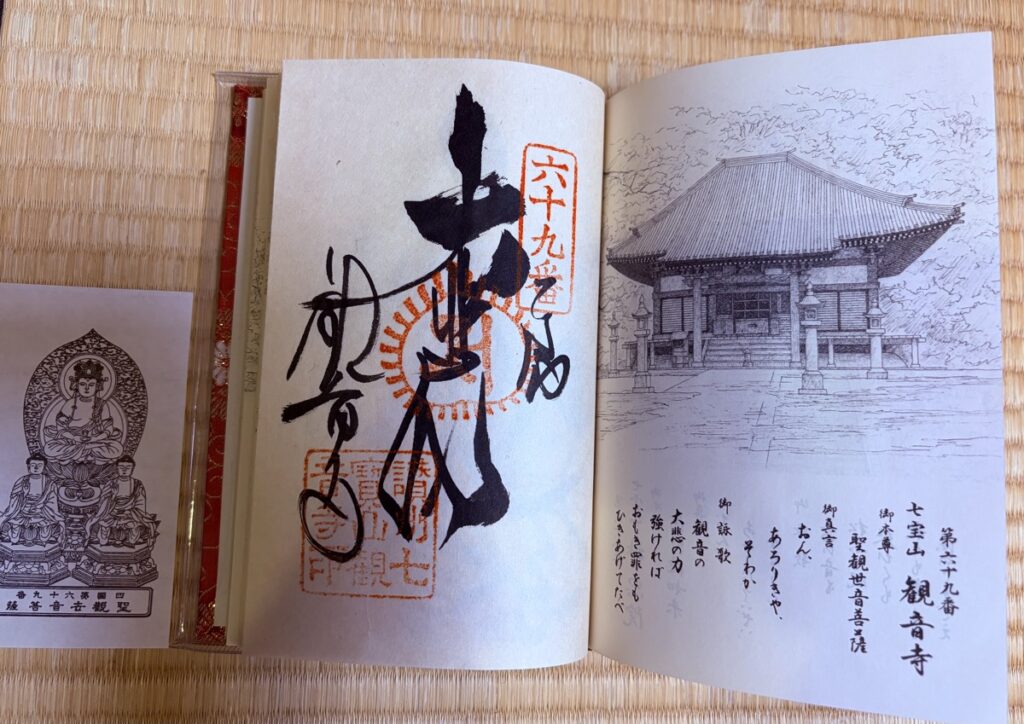 第六十九番
七宝山 観音寺
御本尊
聖観世音菩薩
御真言
おん、
あろりきや、
そわか
御詠歌
観音の
大悲の力
強ければ
おもき罪をも
ひきあげてたべ
六十九番
讃州七
寳山観
音寺印
四國第六十九番
聖觀世音菩薩